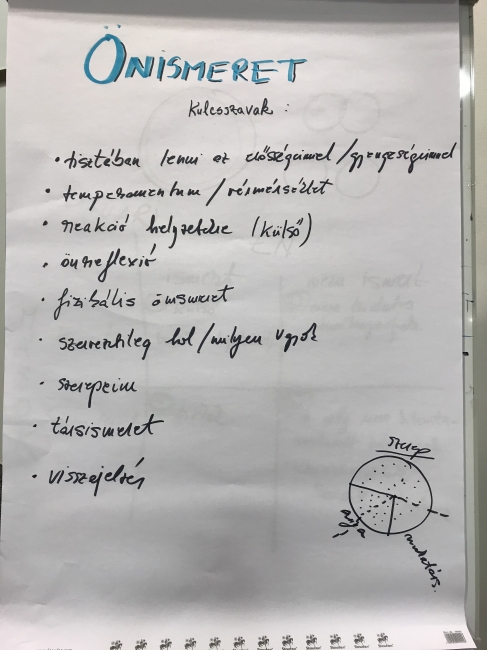 ÖNISMERET
Kulcsszavak:
• tisztában lenni az erősségeimmel/gyengeségeimmel
• temperamentum/vérmérséklet
• reakció helyzetekre (külső)
• önreflexió
• fizikális önismeret
• szerentileg hol/milyen vagyok
• szerepeim
• társismeret
• visszajelzés
szerep
anya
munkatárs.